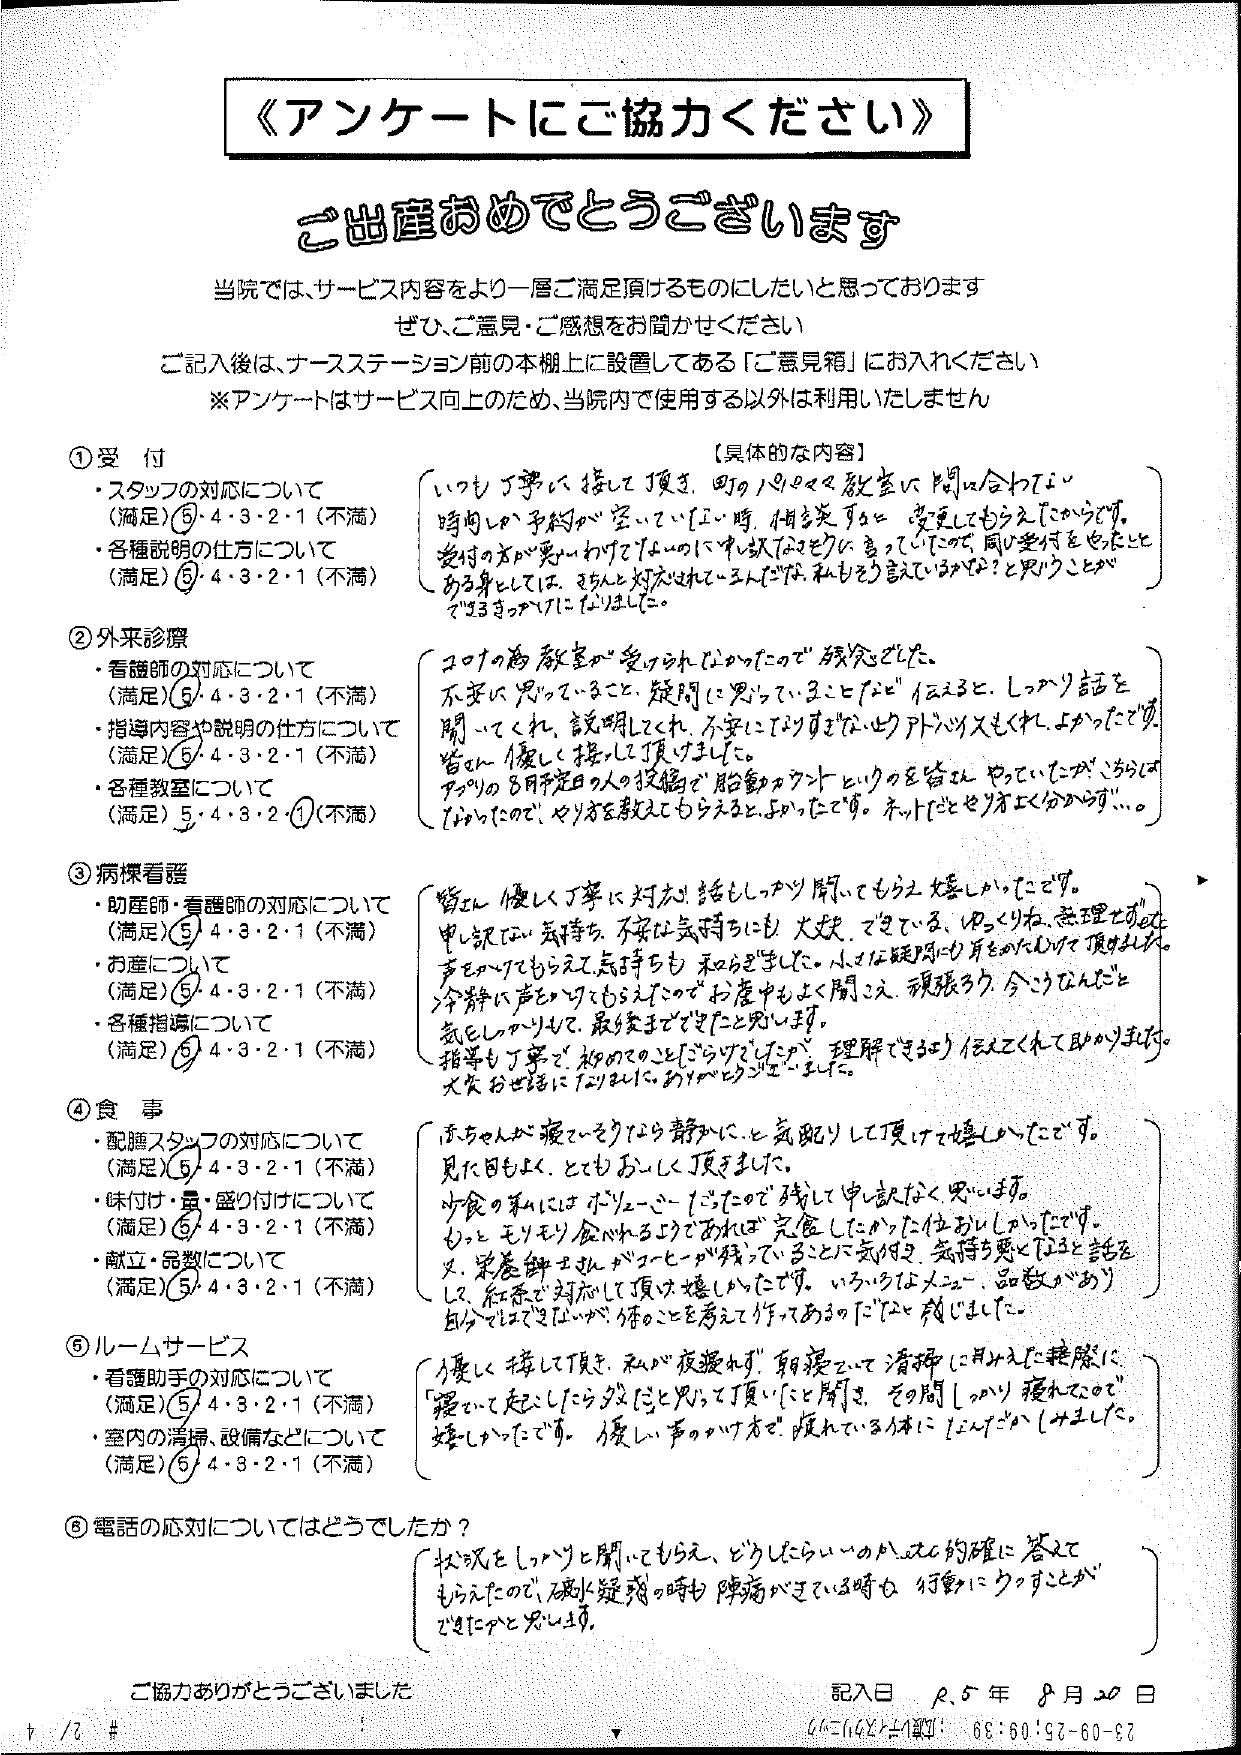 《アンケートにご協力ください》
ご出産おめでとうございます
当院では、サービス内容をより一層ご満足頂けるものにしたいと思っております
ぜひ、ご意見・ご感想をお聞かせください
ご記入後は、ナースステーション前の本棚上に設置してある「ご意見箱」にお入れください
※アンケートはサービス向上のため、当院内で使用する以外は利用いたしません
①受 付
・スタッフの対応について
(満足) 5・4・3・2・1 (不満)
・各種説明の仕方について
(満足) 5・4・3・2・1 (不満)
【具体的な内容】
いつも丁寧に接して頂き、町のパパママ教室に間に合わない
時間しか予約が空いていない時、相談すると変更してもらえたからです。
受付の方が悪いわけでないのに申し訳なさそうに言っていたので、同じ受付をやったこと
ある身としては、きちんと対応されているんだな、私もそう言えているかな?と思うことが
できるきっかけになりました。
②外来診療
・看護師の対応について
(満足) 5・4・3・2・1 (不満)
・指導内容や説明の仕方について
(満足) 5・4・3・2・1 (不満)
・各種教室について
(満足) 5・4・3・2・1 (不満)
コロナの為教室が受けられなかったので残念でした。
不安に思っていること、疑問に思っていることなど伝えると、しっかり話を
聞いてくれ、説明してくれ、不安になりすぎないようアドバイスもくれ、よかったです。
皆さん優しく接して頂けました。
アプリの8月予定日の人の投稿で胎動カウントというのを皆さんやっていたが、こちらは
なかったので、やり方を教えてもらえると、よかったです。ネットだとやり方よく分からず…。
③病棟看護
・助産師・看護師の対応について
(満足) 5・4・3・2・1 (不満)
・お産について
(満足) 5・4・3・2・1 (不満)
・各種指導について
(満足) 5・4・3・2・1 (不満)
皆さん優しく丁寧に対応、話もしっかり聞いてもらえ嬉しかったです。
申し訳ない気持ち、不安な気持ちにも大丈夫、できている、ゆっくりね、無理せずetc
声をかけてもらえて、気持ちも和らぎました。小さな疑問にも耳をかたむけて頂けました。
冷静に声をかけてもらえたのでお産中もよく聞こえ、頑張ろう、今こうなんだと
気をしっかりもて、最後までできたと思います。
指導も丁寧で、初めてのことだらけでしたが、理解できるよう伝えてくれて助かりました。
大変お世話になりました。ありがとうございました。
④食 事
・配膳スタッフの対応について
(満足) 5・4・3・2・1 (不満)
・味付け・量・盛り付けについて
(満足) 5・4・3・2・1 (不満)
・献立・品数について
(満足) 5・4・3・2・1 (不満)
赤ちゃんが寝ていそうなら静かに、と気配りして頂けて嬉しかったです。
見た目もよく、とてもおいしく頂きました。
少食の私にはボリューミーだったので残して申し訳なく思います。
もっとモリモリ食べれるようであれば完食したかった位おいしかったです。
又、栄養師士さんがコーヒーが残っていることに気付き、気持ち悪くなると話を
して、紅茶で対応して頂け、嬉しかったです。いろいろなメニュー、品数があり
自分ではできないが、体のことを考えて作ってあるのだなと感じました。
⑤ルームサービス
・看護助手の対応について
(満足) 5・4・3・2・1 (不満)
・室内の清掃、設備などについて
(満足) 5・4・3・2・1 (不満)
優しく接して頂き、私が夜寝れず、朝寝ていて清掃にみえた際に
「寝ていて起こしたらダメだ」と思って頂いたと聞き、その間しっかり寝れてたので
嬉しかったです。優しい声のかけ方で、疲れている体になんだかしみました。
⑥電話の応対についてはどうでしたか?
状況をしっかりと聞いてもらえ、どうしたらいいのかetc的確に答えて
もらえたので、破水疑惑の時も陣痛がきている時も行動にうつすことが
できたかと思います。
ご協力ありがとうございました
記入日 R.5年 8月20日
23-09-25;09:39 ;広渡レディスクリニック
# 2/ 4